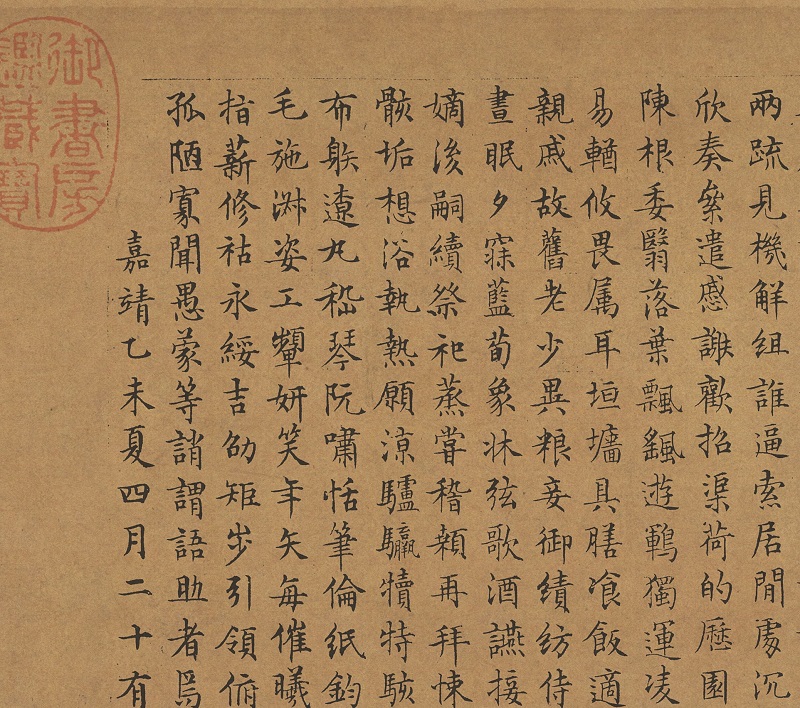 兩疏見機解組誰逼索居閒處沉
欣奏絫遣慼謝歡招渠荷的歷園
陳根委翳落葉飄颻遊鵾獨運凌
易輶攸畏属耳垣墻具膳飡飯適
親戚故舊老少異粮妾御績紡侍
晝眠夕寐藍筍象牀弦歌酒讌接
嫡後嗣續祭祀蒸嘗稽顙再拜悚
骸垢想浴執熱願涼驢騾犢特駭
布射遼丸嵇琴阮嘯恬筆倫紙鈞
毛施淑姿工顰妍笑年矢每催曦
指薪修祜永綏吉劭矩步引領俯
孤陋寡聞愚蒙等誚謂語助者焉
嘉靖乙未夏四月二十有
御書房
鑑藏寶